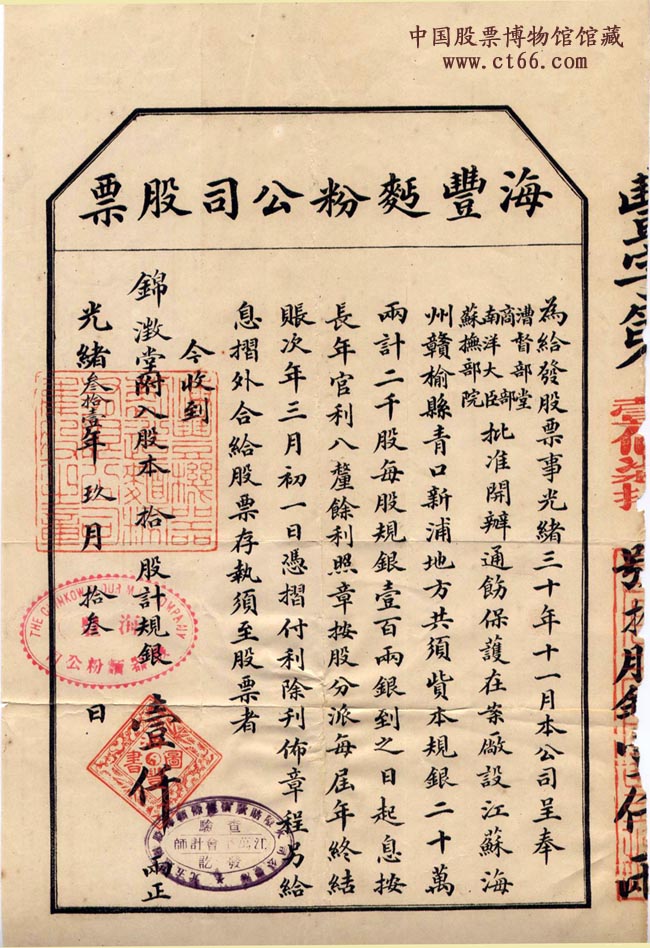 中国股票博物馆馆藏
www.ct66.com
海豐麪粉公司股票
為給發股票事光緒三十年十一月本公司呈奉
漕督部堂
商部
南洋大臣
蘇撫部院
批准開辦通飭保護在案廠設江蘇海
州贛榆縣青口新浦地方共須貲本規銀二十萬
兩計二千股每股規銀壹百兩銀到之日起息按
長年官利八釐餘利照章按股分派每屆年終結
賬次年三月初一日憑摺付利除刋佈章程另給
息摺外合給股票存執須至股票者
今收到
錦澂堂附入股本拾股計規銀壹仟兩正
光緒叁拾壹年玖月拾叁日
COMPANY
麵粉公司
圖書
查驗
會計師
發訖